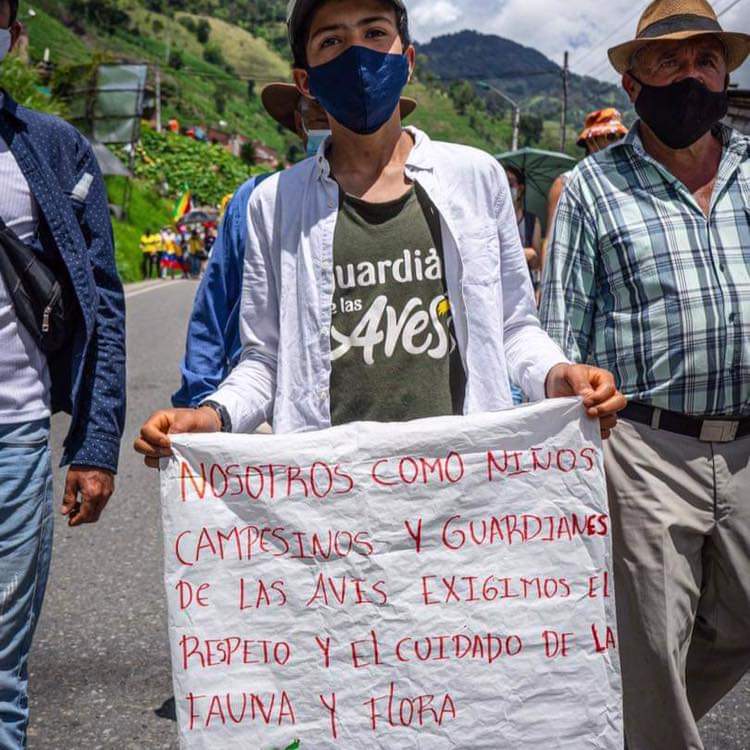 uardiá
e las
Aves
NOSOTROS COMO NIÑOS
CAMPESINOS Y GUARDIANES
DE LAS AVIS EXIGIMOS El
RESPETO Y El CUIDADO DE LA
FAUNA Y FlORA